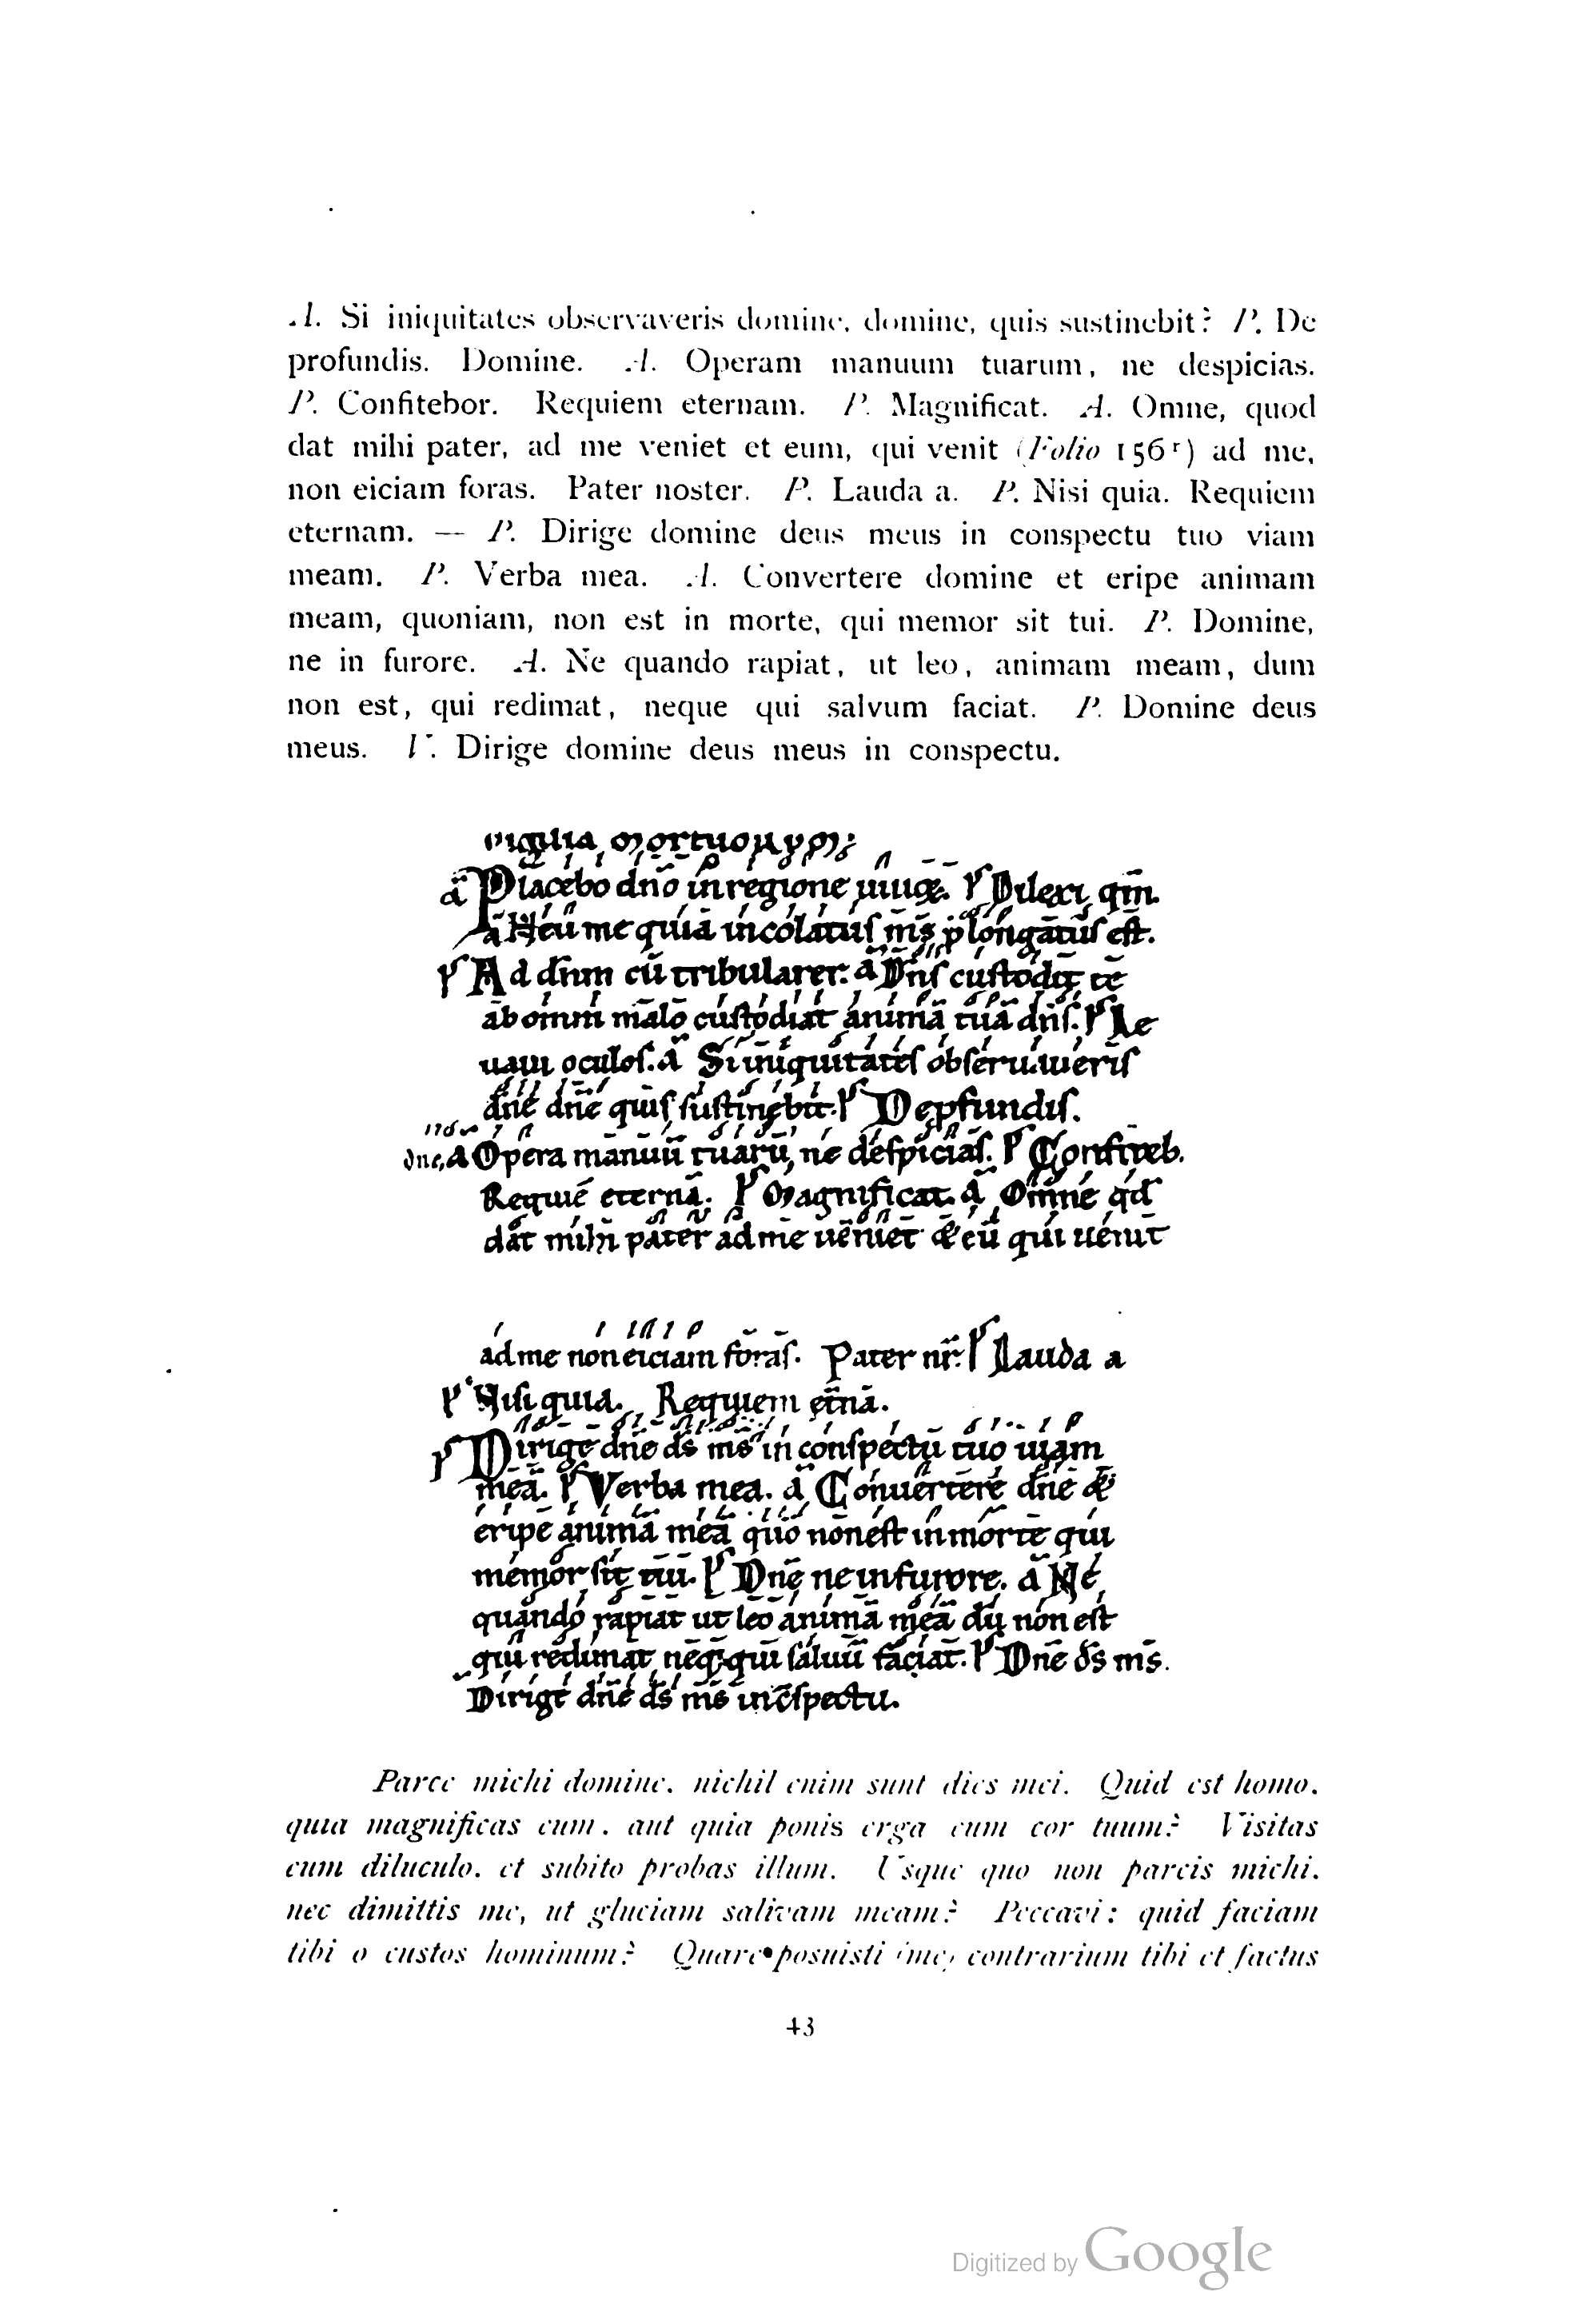 A. Si iniquitates observaveris domine, domine, quis sustinebit? P. De
profundis. Domine. A. Operam manuum tuarum, ne despicias.
P. Confitebor. Requiem eternam. P. Magnificat. A. Omne, quod
dat mihi pater, ad me veniet et eum, qui venit (Folio 156ʳ) ad me,
non eiciam foras. Pater noster. P. Lauda a. P. Nisi quia. Requiem
eternam. — P. Dirige domine deus meus in conspectu tuo viam
meam. P. Verba mea. A. Convertere domine et eripe animam
meam, quoniam, non est in morte, qui memor sit tui. P. Domine,
ne in furore. A. Ne quando rapiat, ut leo, animam meam, dum
non est, qui redimat, neque qui salvum faciat. P. Domine deus
meus. V. Dirige domine deus meus in conspectu.
uigilia mortuorum
ā Placebo dn̄o in regione uiuoꝝ. P Dilexi qm̄.
ā Heu me quia incolatus m̄s ꝓlongatus est.
P Ad dn̄m cū tribularer. ā Dn̄s custodit te
ab omni malo custodiat animā tuā dn̄s. P Le
uaui oculos. ā Si iniquitates obseruaueris
dn̄e dn̄e quis sustinebit. P De ꝓfundis.
dne. ā Opera manuū tuarū, ne despicias. P Confiteb.
Requiē eternā. P Magnificat. ā Omne qd̄
dat mihi pater ad me ueniet & eū qui uenit
ad me non eiciam foras. Pater nr̄. P Lauda a
P Nisi quia. Requiem et̄nā.
P Dirige dn̄e ds̄ ms̄ in conspectu tuo uiam
meā. P Verba mea. ā Conuertere dn̄e &
eripe animā meā quō non est in morte qui
memor sit tui. P Dn̄e ne in furore. ā Ne
quando rapiat ut leo animā meā dū non est
qui redimat neq; qui saluū faciat. P Dn̄e ds̄ ms̄.
Dirige dn̄e ds̄ ms̄ in cōspectu.
Parce michi domine. nichil enim sunt dies mei. Quid est homo.
quia magnificas eum. aut quia ponis erga eum cor tuum? Visitas
eum diluculo. et subito probas illum. Usque quo non parcis michi.
nec dimittis me, ut gluciam salivam meam? Peccavi: quid faciam
tibi o custos hominum? Quare posuisti (me) contrarium tibi et factus
43
Digitized by Google